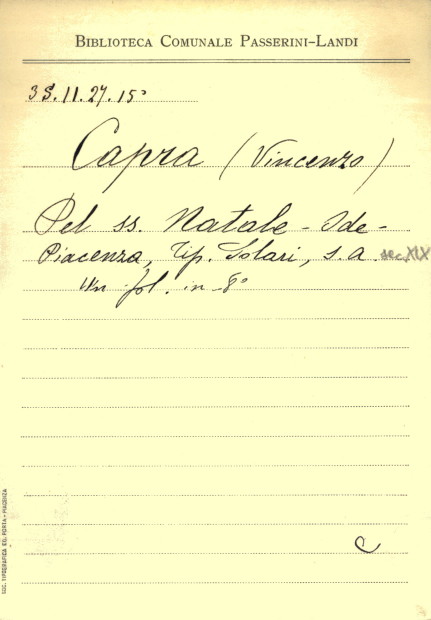 BIBLIOTECA COMUNALE PASSERINI-LANDI
3S.11.27.15°
Capra (Vincenzo)
Pel ss. Natale - Ode -
Piacenza, Tip. Solari, s. a. sec. XIX
Un fol. in - 8°
C
SOC. TIPOGRAFICA ED. PORTA - PIACENZA